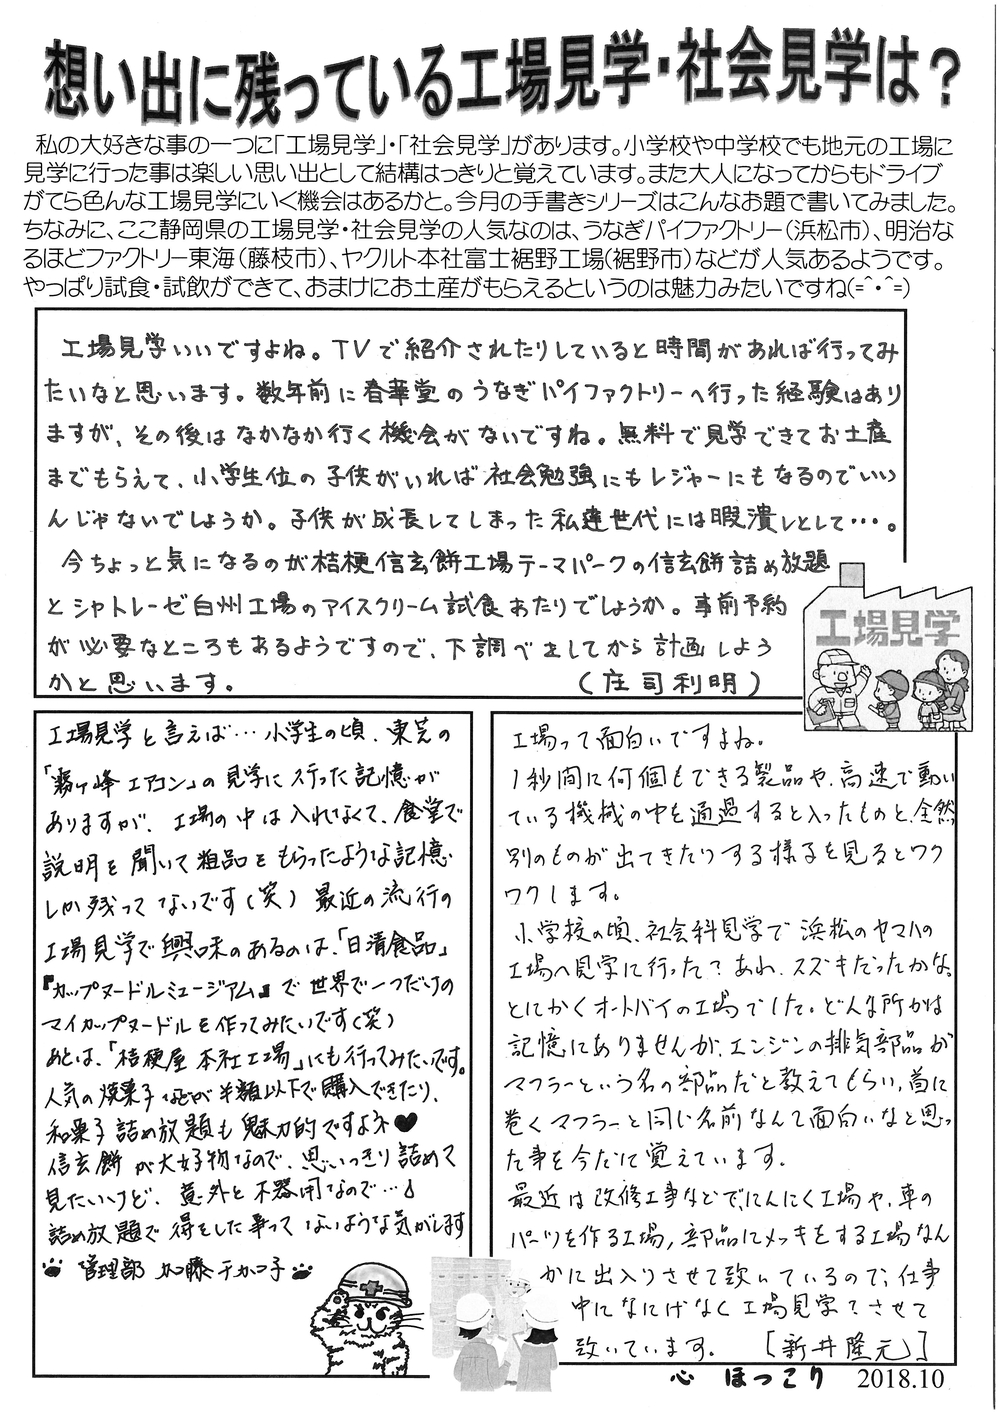 想い出に残っている工場見学・社会見学は？
私の大好きな事の一つに「工場見学」・「社会見学」があります。小学校や中学校でも地元の工場に
見学に行った事は楽しい思い出として結構はっきりと覚えています。また大人になってからもドライブ
がてら色んな工場見学にいく機会はあるかと。今月の手書きシリーズはこんなお題で書いてみました。
ちなみに、ここ静岡県の工場見学・社会見学の人気なのは、うなぎパイファクトリー（浜松市）、明治な
るほどファクトリー東海（藤枝市）、ヤクルト本社富士裾野工場（裾野市）などが人気あるようです。
やっぱり試食・試飲ができて、おまけにお土産がもらえるというのは魅力みたいですね(=^・^=)
工場見学いいですよね。TVで紹介されたりしていると時間があれば行ってみ
たいなと思います。数年前に春華堂のうなぎパイファクトリーへ行った経験はあり
ますが、その後はなかなか行く機会がないですね。無料で見学できてお土産
までもらえて、小学生位の子供がいれば社会勉強にもレジャーにもなるのでいい
んじゃないでしょうか。子供が成長してしまった私達世代には暇潰しとして・・・。
今ちょっと気になるのが桔梗信玄餅工場テーマパークの信玄餅詰め放題
とシャトレーゼ白州工場のアイスクリーム試食あたりでしょうか。事前予約
が必要なところもあるようですので、下調べをしてから計画しよう
かと思います。（庄司利明）
工場見学
工場見学と言えば・・・小学生の頃、東芝の
「霧ヶ峰エアコン」の見学に行った記憶が
ありますが、工場の中は入れなくて、食堂で
説明を聞いて粗品をもらったような記憶
しか残ってないです（笑）最近の流行の
工場見学で興味のあるのは、「日清食品」
『カップヌードルミュージアム』で世界で一つだけの
マイカップヌードルを作ってみたいです（笑）
あとは、「桔梗屋本社工場」にも行ってみたいです。
人気の焼菓子などが半額以下で購入できたり、
和菓子詰め放題も魅力的ですよネ♥
信玄餅が大好物なので、思いっきり詰めて
見たいけど、意外と不器用なので・・・♪
詰め放題で得をした事ってないような気がします
管理部 加藤テカコ子
工場って面白いですよね。
1秒間に何個もできる製品や、高速で動い
ている機械の中を通過すると入ったものと全然
別のものが出てきたりする様子を見るとワク
ワクします。
小学校の頃、社会科見学で浜松のヤマハの
工場へ見学に行った？あれ、スズキだったかな。
とにかくオートバイの工場でした。どんな所かは
記憶にありませんが、エンジンの排気部品が
マフラーという名の部品だと教えてもらい、首に
巻くマフラーと同じ名前なんて面白いなと思っ
た事を今だに覚えています。
最近は改修工事などで、にんにく工場や、車の
パーツを作る工場、部品にメッキをする工場なん
かに出入りさせて頂いているので、仕事
中になにげなく工場見学をさせて
頂いています。［新井隆元］
心 ほっこり 2018.10